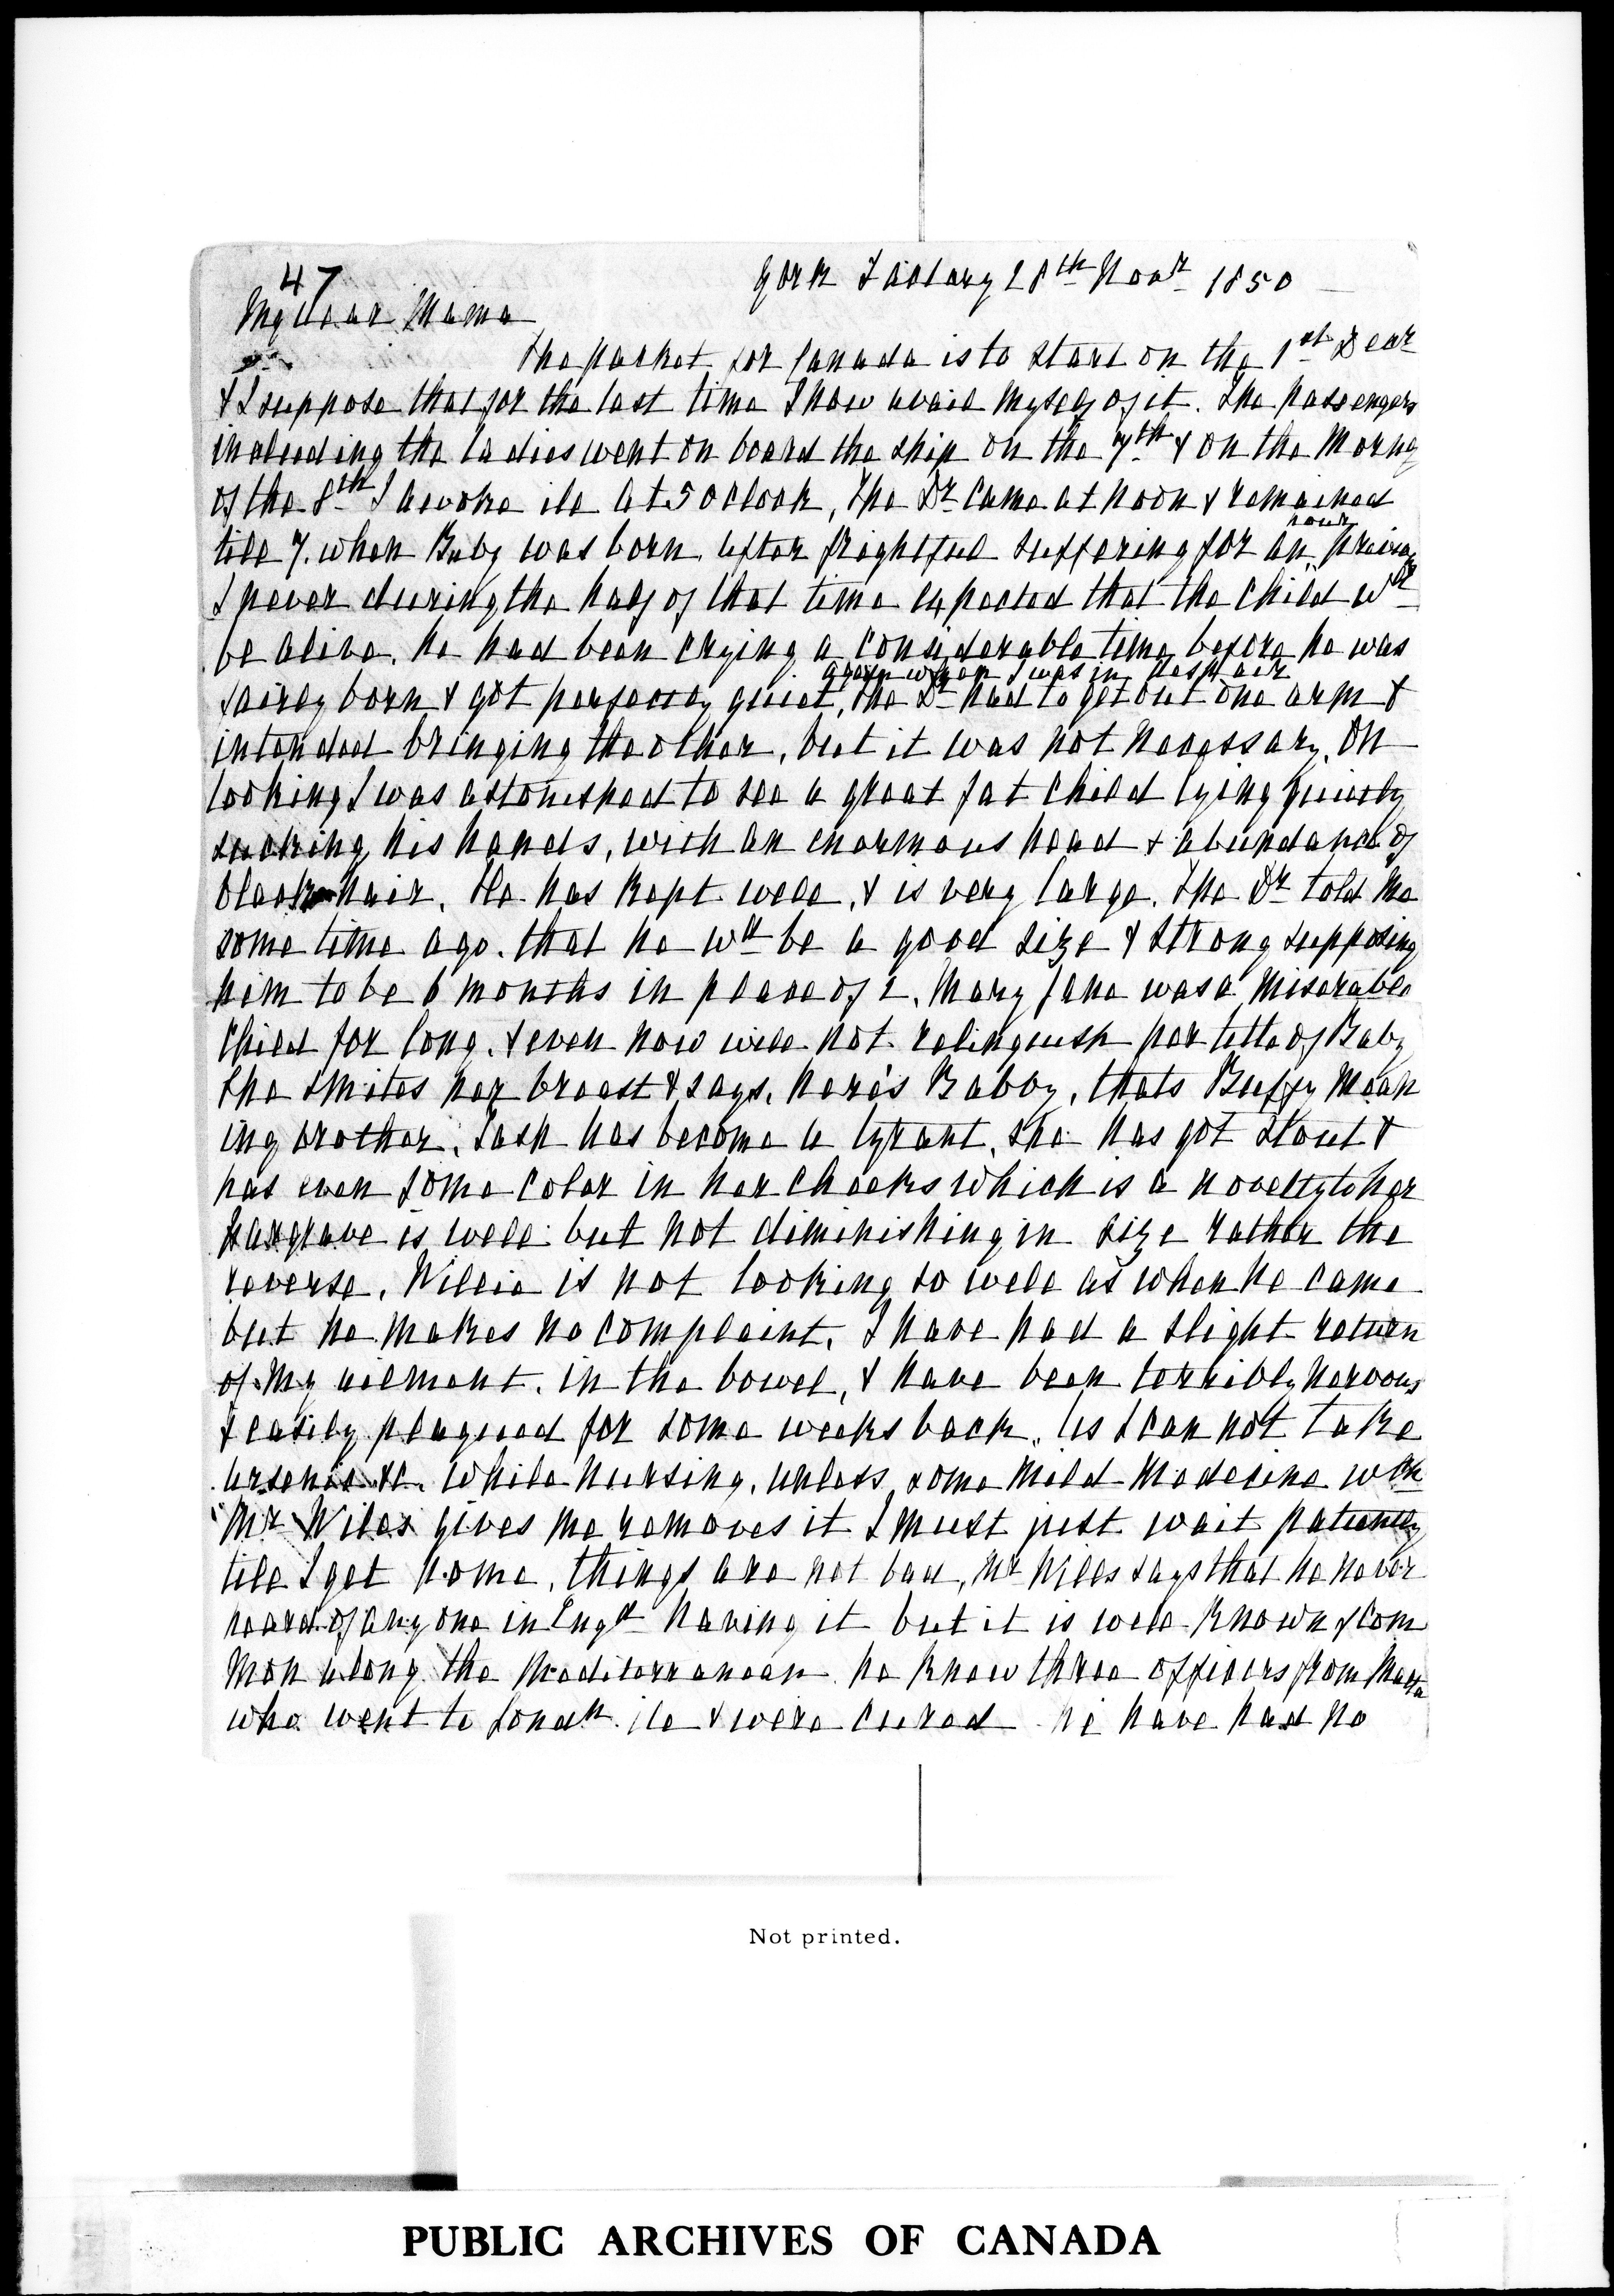 47
York Factory 28th Novr 1850
My dear Mama
The packet for Canada is to start on the 1st Decr
& I suppose that for the last time I now avail myself of it. The passengers
including the ladies went on board the ship on the 7th & on the Morng
of the 8th I awoke ile at 5 oclock, The Dr came at noon & remained
till 7. when Baby was born after frightful suffering for an hour previous
I never during the half of that time expected that the child wd
be alive. he had been crying a considerable time before he was
again when I was in despair
fairly born & got perfectly quiet, the Dr had to get out one arm &
intended bringing the other, but it was not necessary, On
looking I was astonished to see a great fat child lying quietly
sucking his hands, with an enormous head & abundance of
black hair. He has kept well, & is very large. The Dr told me
some time ago. that he wd be a good size & strong supposing
him to be 6 months in place of 2. Mary Jane was a miserable
Child for long. & even now will not relinquish her title of Baby
She smites her breast & says, here's Babby, thats Buffy Mean
ing brother. Tash has become a tyrant, she has got stout &
has even some color in her cheeks which is a novelty to her
Hargrave is well but not diminishing in size rather the
reverse. Willie is not looking so well as when he came
but he makes no complaint. I have had a slight return
of my ailment. in the bowel, & have been terribly nervous
& easily plagued for some weeks back. As I can not take
arsenic &c. while nursing, unless some mild Medecine wch
Mr Wiles gives me removes it I must just wait patiently
till I get home, things are not bad, Mr Wiles says that he never
heard of any one in Engd having it but it is well known & com
mon along the Mediterranean he knew three officers from Malta
who went to Londn ile & were cured We have had no
Not printed.
PUBLIC ARCHIVES OF CANADA